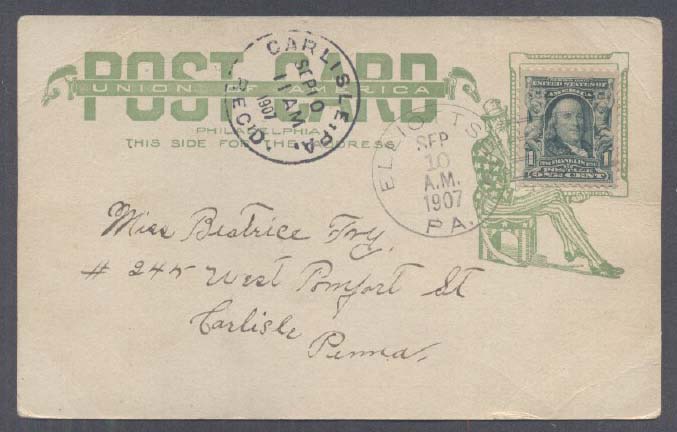 POST CARD
UNION OF AMERICA
PHILADELPHIA
THIS SIDE FOR THE ADDRESS
CARLISLE, PA.
SEP 10
11 AM
1907
REC'D.
ELLIOTTS
SEP
10
A.M.
1907
PA.
UNITED STATES OF
AMERICA
1 FRANKLIN 1
POSTAGE
ONE CENT
Miss Beatrice Fry.
# 245 West Pomfort St
Carlisle
Penna.